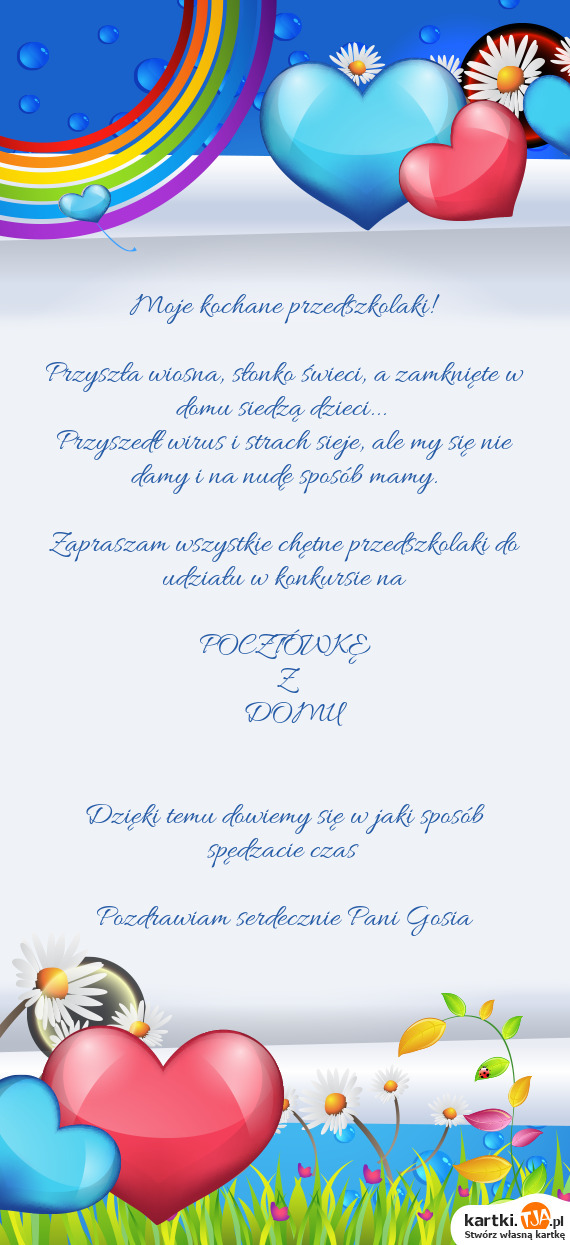 Moje kochane przedszkolaki!
Przyszła wiosna, słonko świeci, a zamknięte w
domu siedzą dzieci...
Przyszedł wirus i strach sieje, ale my się nie
damy i na nudę sposób mamy.
Zapraszam wszystkie chętne przedszkolaki do
udziału w konkursie na
POCZTÓWKĘ
Z
DOMU
Dzięki temu dowiemy się w jaki sposób
spędzacie czas
Pozdrawiam serdecznie Pani Gosia
kartki.TJA.pl
Stwórz własną kartkę